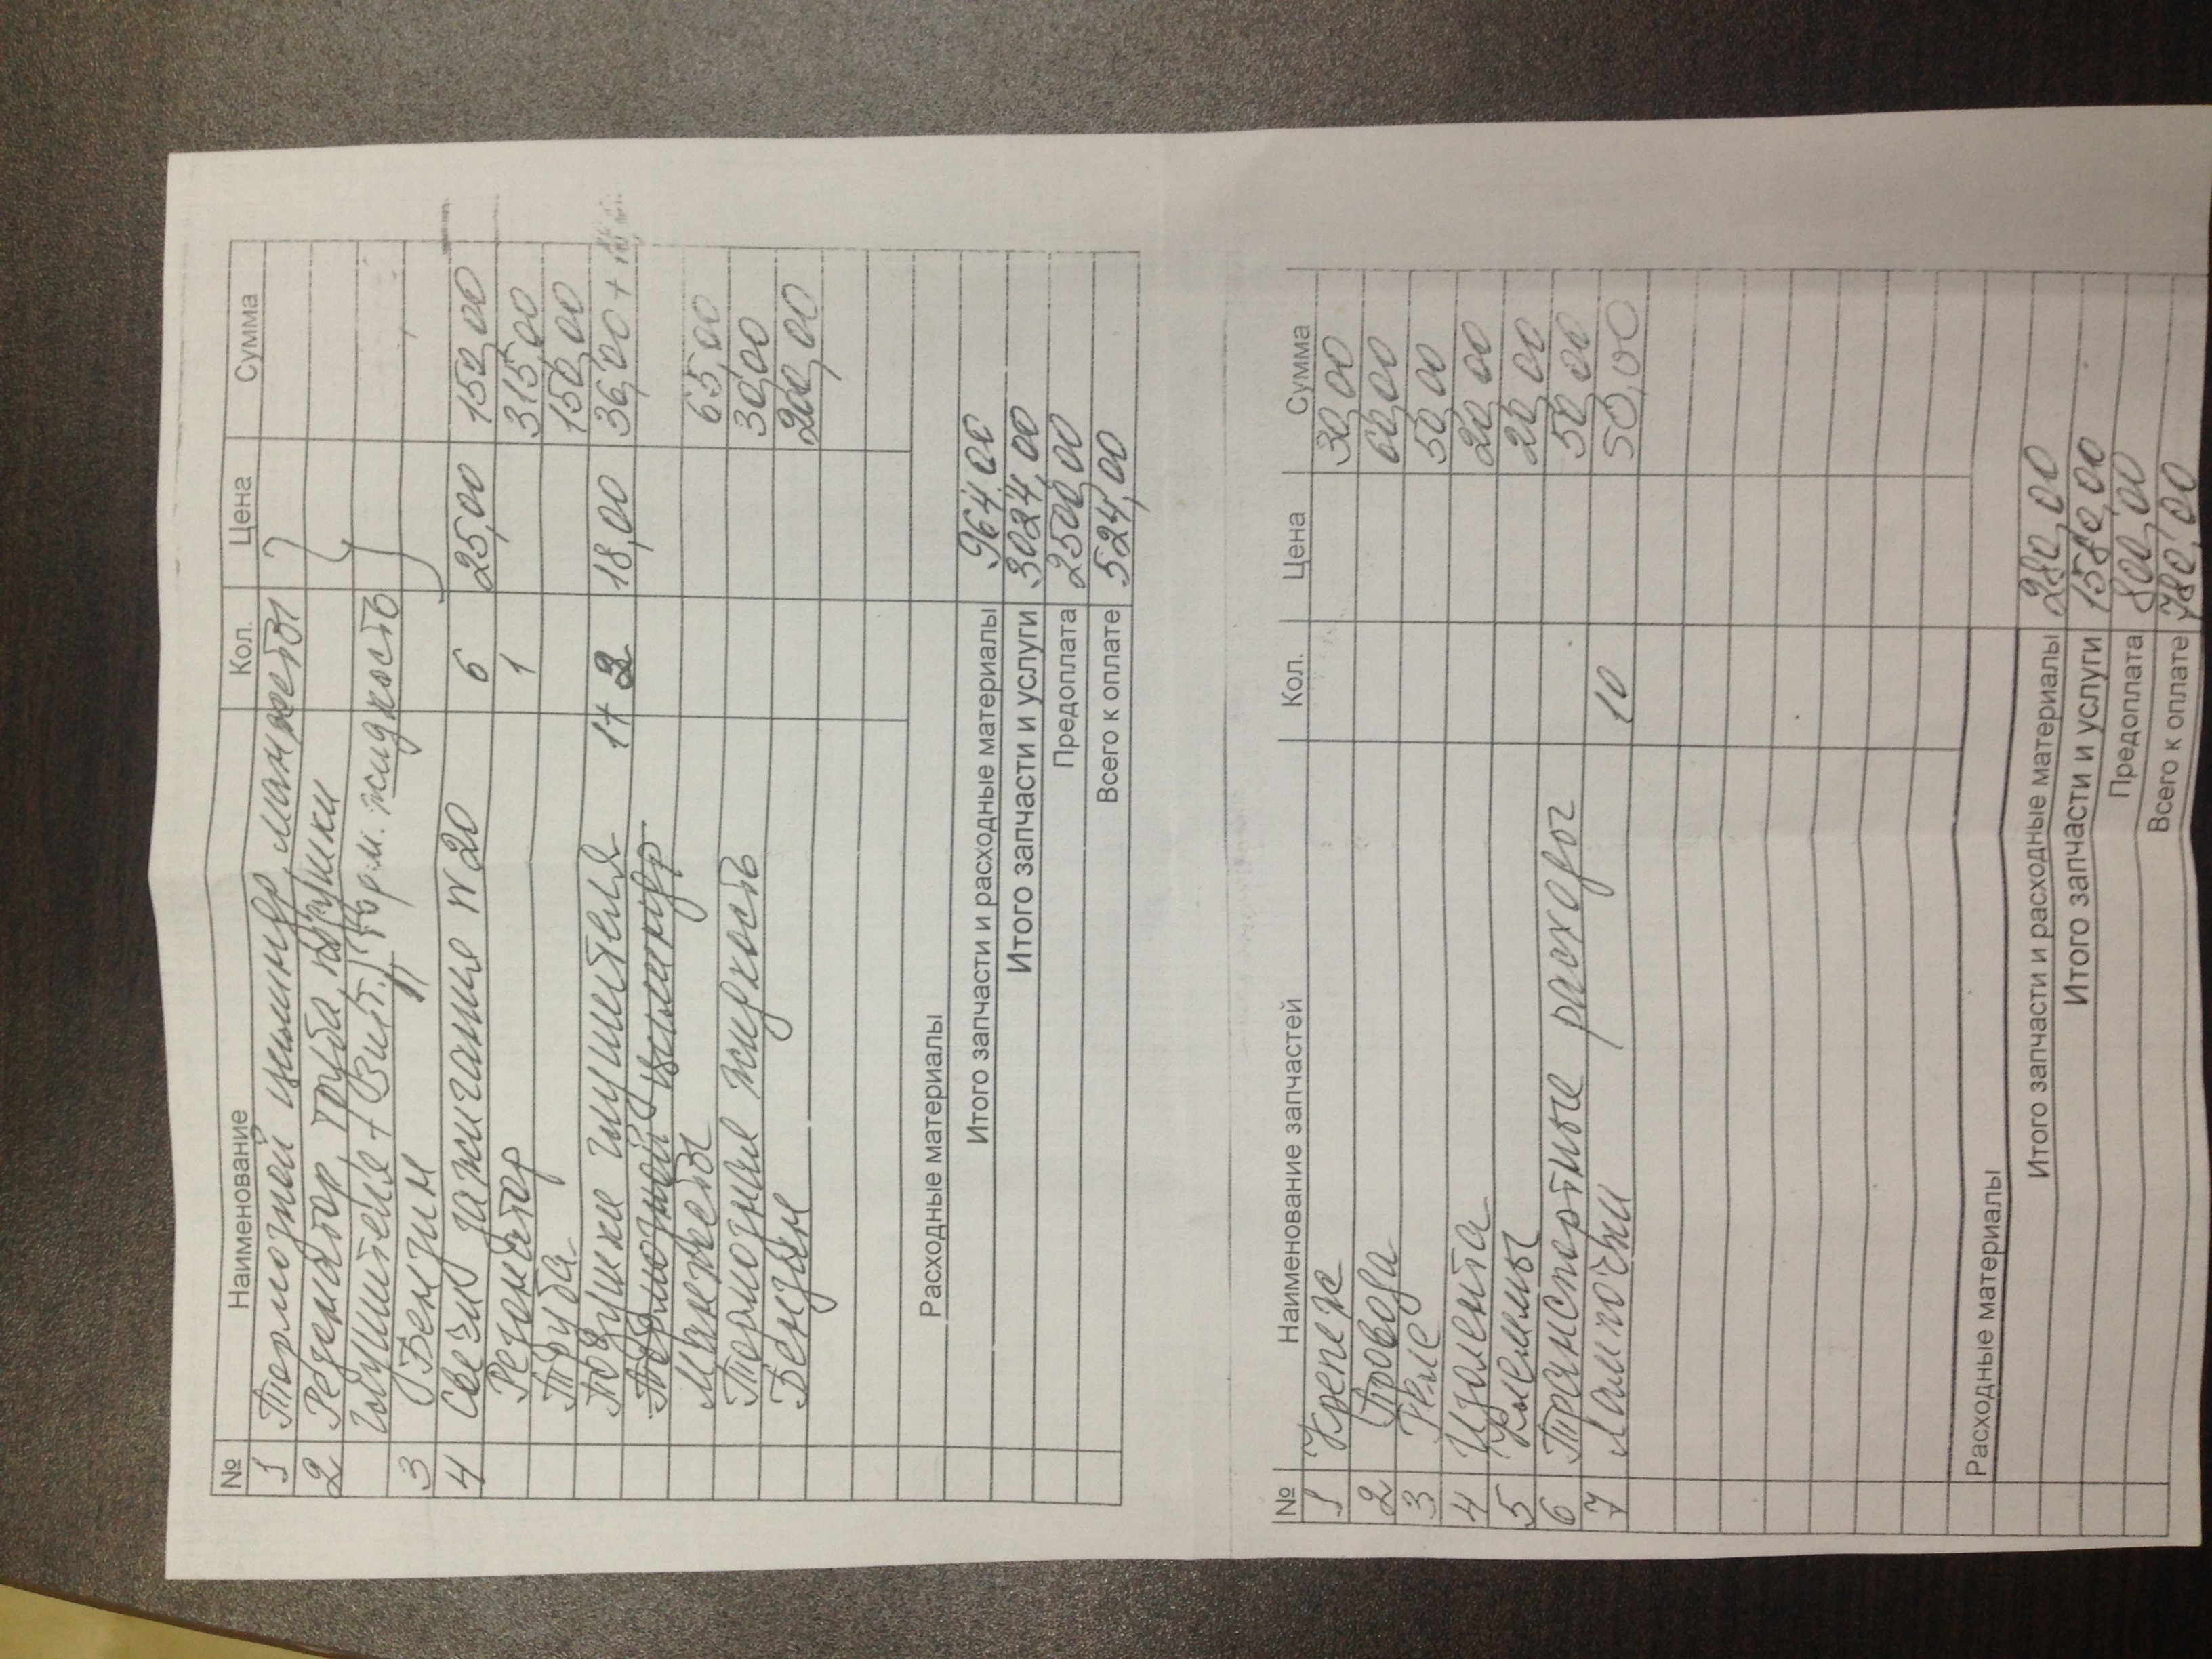 № Наименование Кол. Цена Сумма
1 Тормозной цилиндр, манжеты
2 Резонатор, труба, подушки
глушителя + Винт, торм. жидкость
3 Бензин
4 Свечи зажигание W20 6 25,00 150,00
Резонатор 1 315,00
Труба 150,00
Подушки глушителя 1+2 18,00 36,00 +
Тормозной цилиндр
Манжеты 65,00
Тормозная жидкость 30,00
Бензин 200,00
Расходные материалы
Итого запчасти и расходные материалы 964,00
Итого запчасти и услуги 3024,00
Предоплата 2500,00
Всего к оплате 524,00
№ Наименование запчастей Кол. Цена Сумма
1 Крепеж 30,00
2 Провода 60,00
3 Реле 50,00
4 Изолента 20,00
5 Клеммы 20,00
6 Транспортные расходы 50,00
7 Лампочки 10 50,00
Расходные материалы
Итого запчасти и расходные материалы 280,00
Итого запчасти и услуги 1580,00
Предоплата 800,00
Всего к оплате 780,00